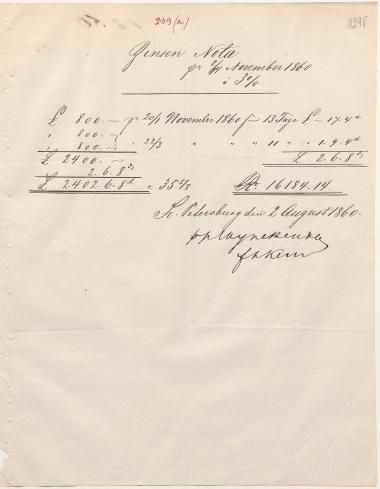 299 (a)
1298
Zinsen Nota
pr 2/4 November 1860
à 3%
£ 800. ~ pr 20/1 November 1860 für 13 Tage £ ~ 17. 4d
" 800. ~
" 800. ~ " 22/3 " " " 11 " " 1. 9. 4d
£ 2400. ~ £ 2. 6. 8d
2. 6. 8d
£ 2402. 6. 8d à 35 7/8 R. 16184. 14
St. Petersburg den 2 August 1860.